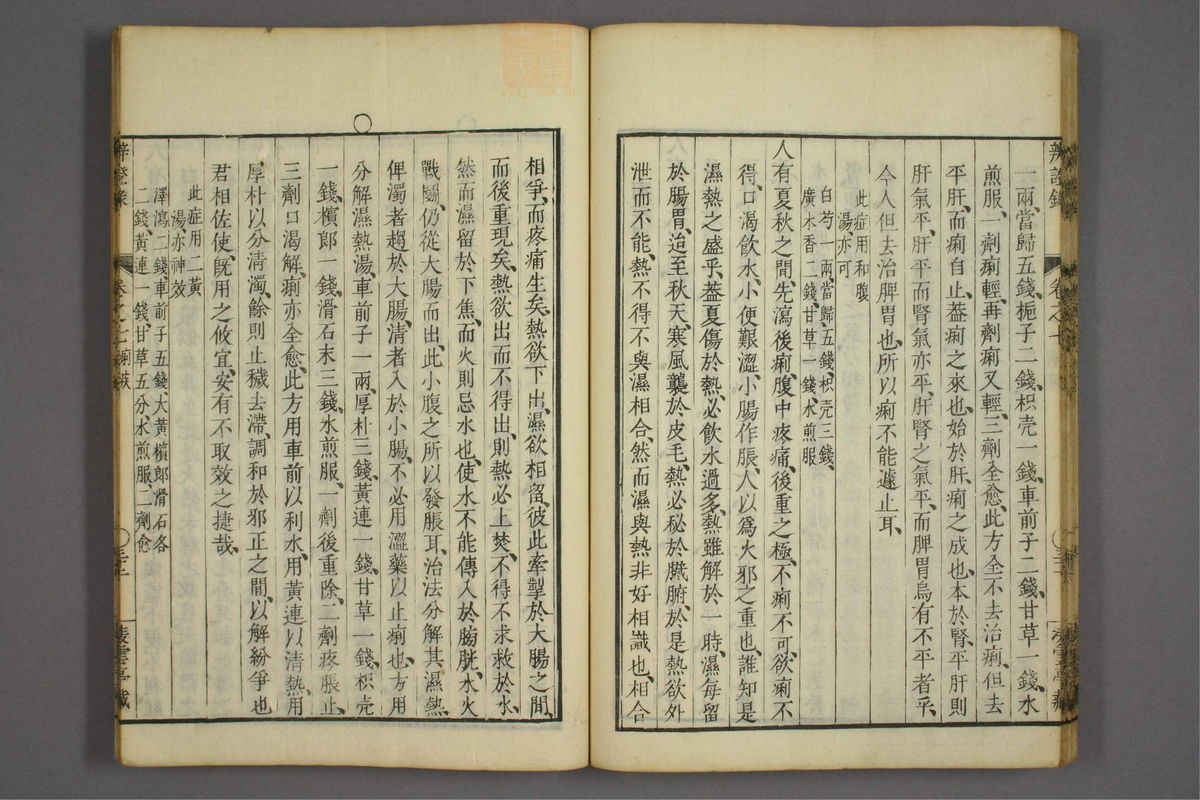 辨證錄
卷之七
一兩、當歸五錢、梔子二錢、枳壳一錢、車前子二錢、甘草一錢、水
煎服、一劑痢輕、再劑痢又輕、三劑全愈、此方全不去治痢、但去
平肝、而痢自止、蓋痢之來也、始於肝、痢之成也、本於腎、平肝則
肝氣平、肝平而腎氣亦平、肝腎之氣平、而脾胃烏有不平者乎、
今人但去治脾胃也、所以痢不能遽止耳、
此症用和腹
湯、亦可
白芍一兩、當歸五錢、枳壳三錢、
廣木香二錢、甘草一錢、水煎服
人有夏秋之間、先瀉後痢、腹中疼痛、後重之極、不痢不可、欲痢不
得、口渴飲水、小便艱澀、小腸作脹、人以爲火邪之重也、誰知是
濕熱之盛乎、蓋夏傷於熱、必飲水過多、熱雖解於一時、濕每留
於腸胃、迨至秋天、寒風襲於皮毛、熱必秘於臟腑、於是熱欲外
泄而不能、熱不得不與濕相合、然而濕與熱非好相識也、相合
相爭、而疼痛生矣、熱欲下出、濕欲相留、彼此牽掣於大腸之間、
而後重現矣、熱欲出而不得出、則熱必上焚、不得不求救於水、
然而濕留於下焦、而火則忌水也、使水不能傳入於膀胱、水火
戰鬭、仍從大腸而出、此小腹之所以發脹耳、治法分解其濕熱、
俾濁者趨於大腸、清者入於小腸、不必用澀藥以止痢也、方用
分解濕熱湯、車前子一兩、厚朴三錢、黃連一錢、甘草一錢、枳壳
一錢、檳郎一錢、滑石末三錢、水煎服、一劑後重除、二劑疼脹止、
三劑口渴解、痢亦全愈、此方用車前以利水、用黃連以清熱、用
厚朴以分清濁、餘則止穢去滯、調和於邪正之間、以解紛爭也、
君相佐使、旣用之攸宜、安有不取效之捷哉、
此症用二黃
湯、亦神效
澤瀉二錢、車前子五錢、大黃檳郎滑石各
二錢、黃連一錢、甘草五分、水煎服、二劑愈
辨證錄
卷之七
痢疾
凌雲亭藏